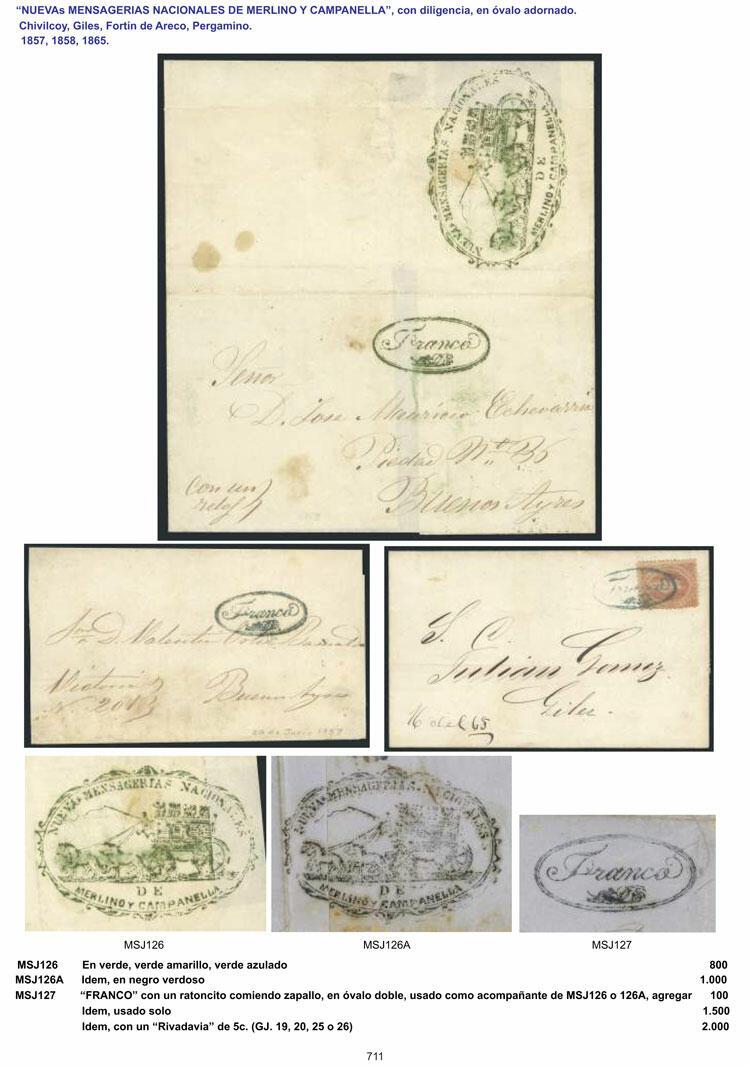 “NUEVAs MENSAGERIAS NACIONALES DE MERLINO Y CAMPANELLA”, con diligencia, en óvalo adornado.
Chivilcoy, Giles, Fortín de Areco, Pergamino.
1857, 1858, 1865.
NUEVAs MENSAGERIAS NACIONALES
DE
MERLINO Y CAMPANELLA
Franco
Señor
D. Jose Mauricio Echevarria
Piedad Nº 36
Buenos Ayres
Con un
reloj
Franco
Sor. D. Valentin
Victoria
Nº 201
Buenos Ayres
20 de Junio 1857
Franco
S. C.
Julian Gomez
Giles.
16 del 65
NUEVAs MENSAGERIAS NACIONALES
DE
MERLINO Y CAMPANELLA
NUEVAs MENSAGERIAS NACIONALES
DE
MERLINO Y CAMPANELLA
Franco
MSJ126
MSJ126A
MSJ127
MSJ126 En verde, verde amarillo, verde azulado 800
MSJ126A Idem, en negro verdoso 1.000
MSJ127 “FRANCO” con un ratoncito comiendo zapallo, en óvalo doble, usado como acompañante de MSJ126 o 126A, agregar 100
Idem, usado solo 1.500
Idem, con un “Rivadavia” de 5c. (GJ. 19, 20, 25 o 26) 2.000
711